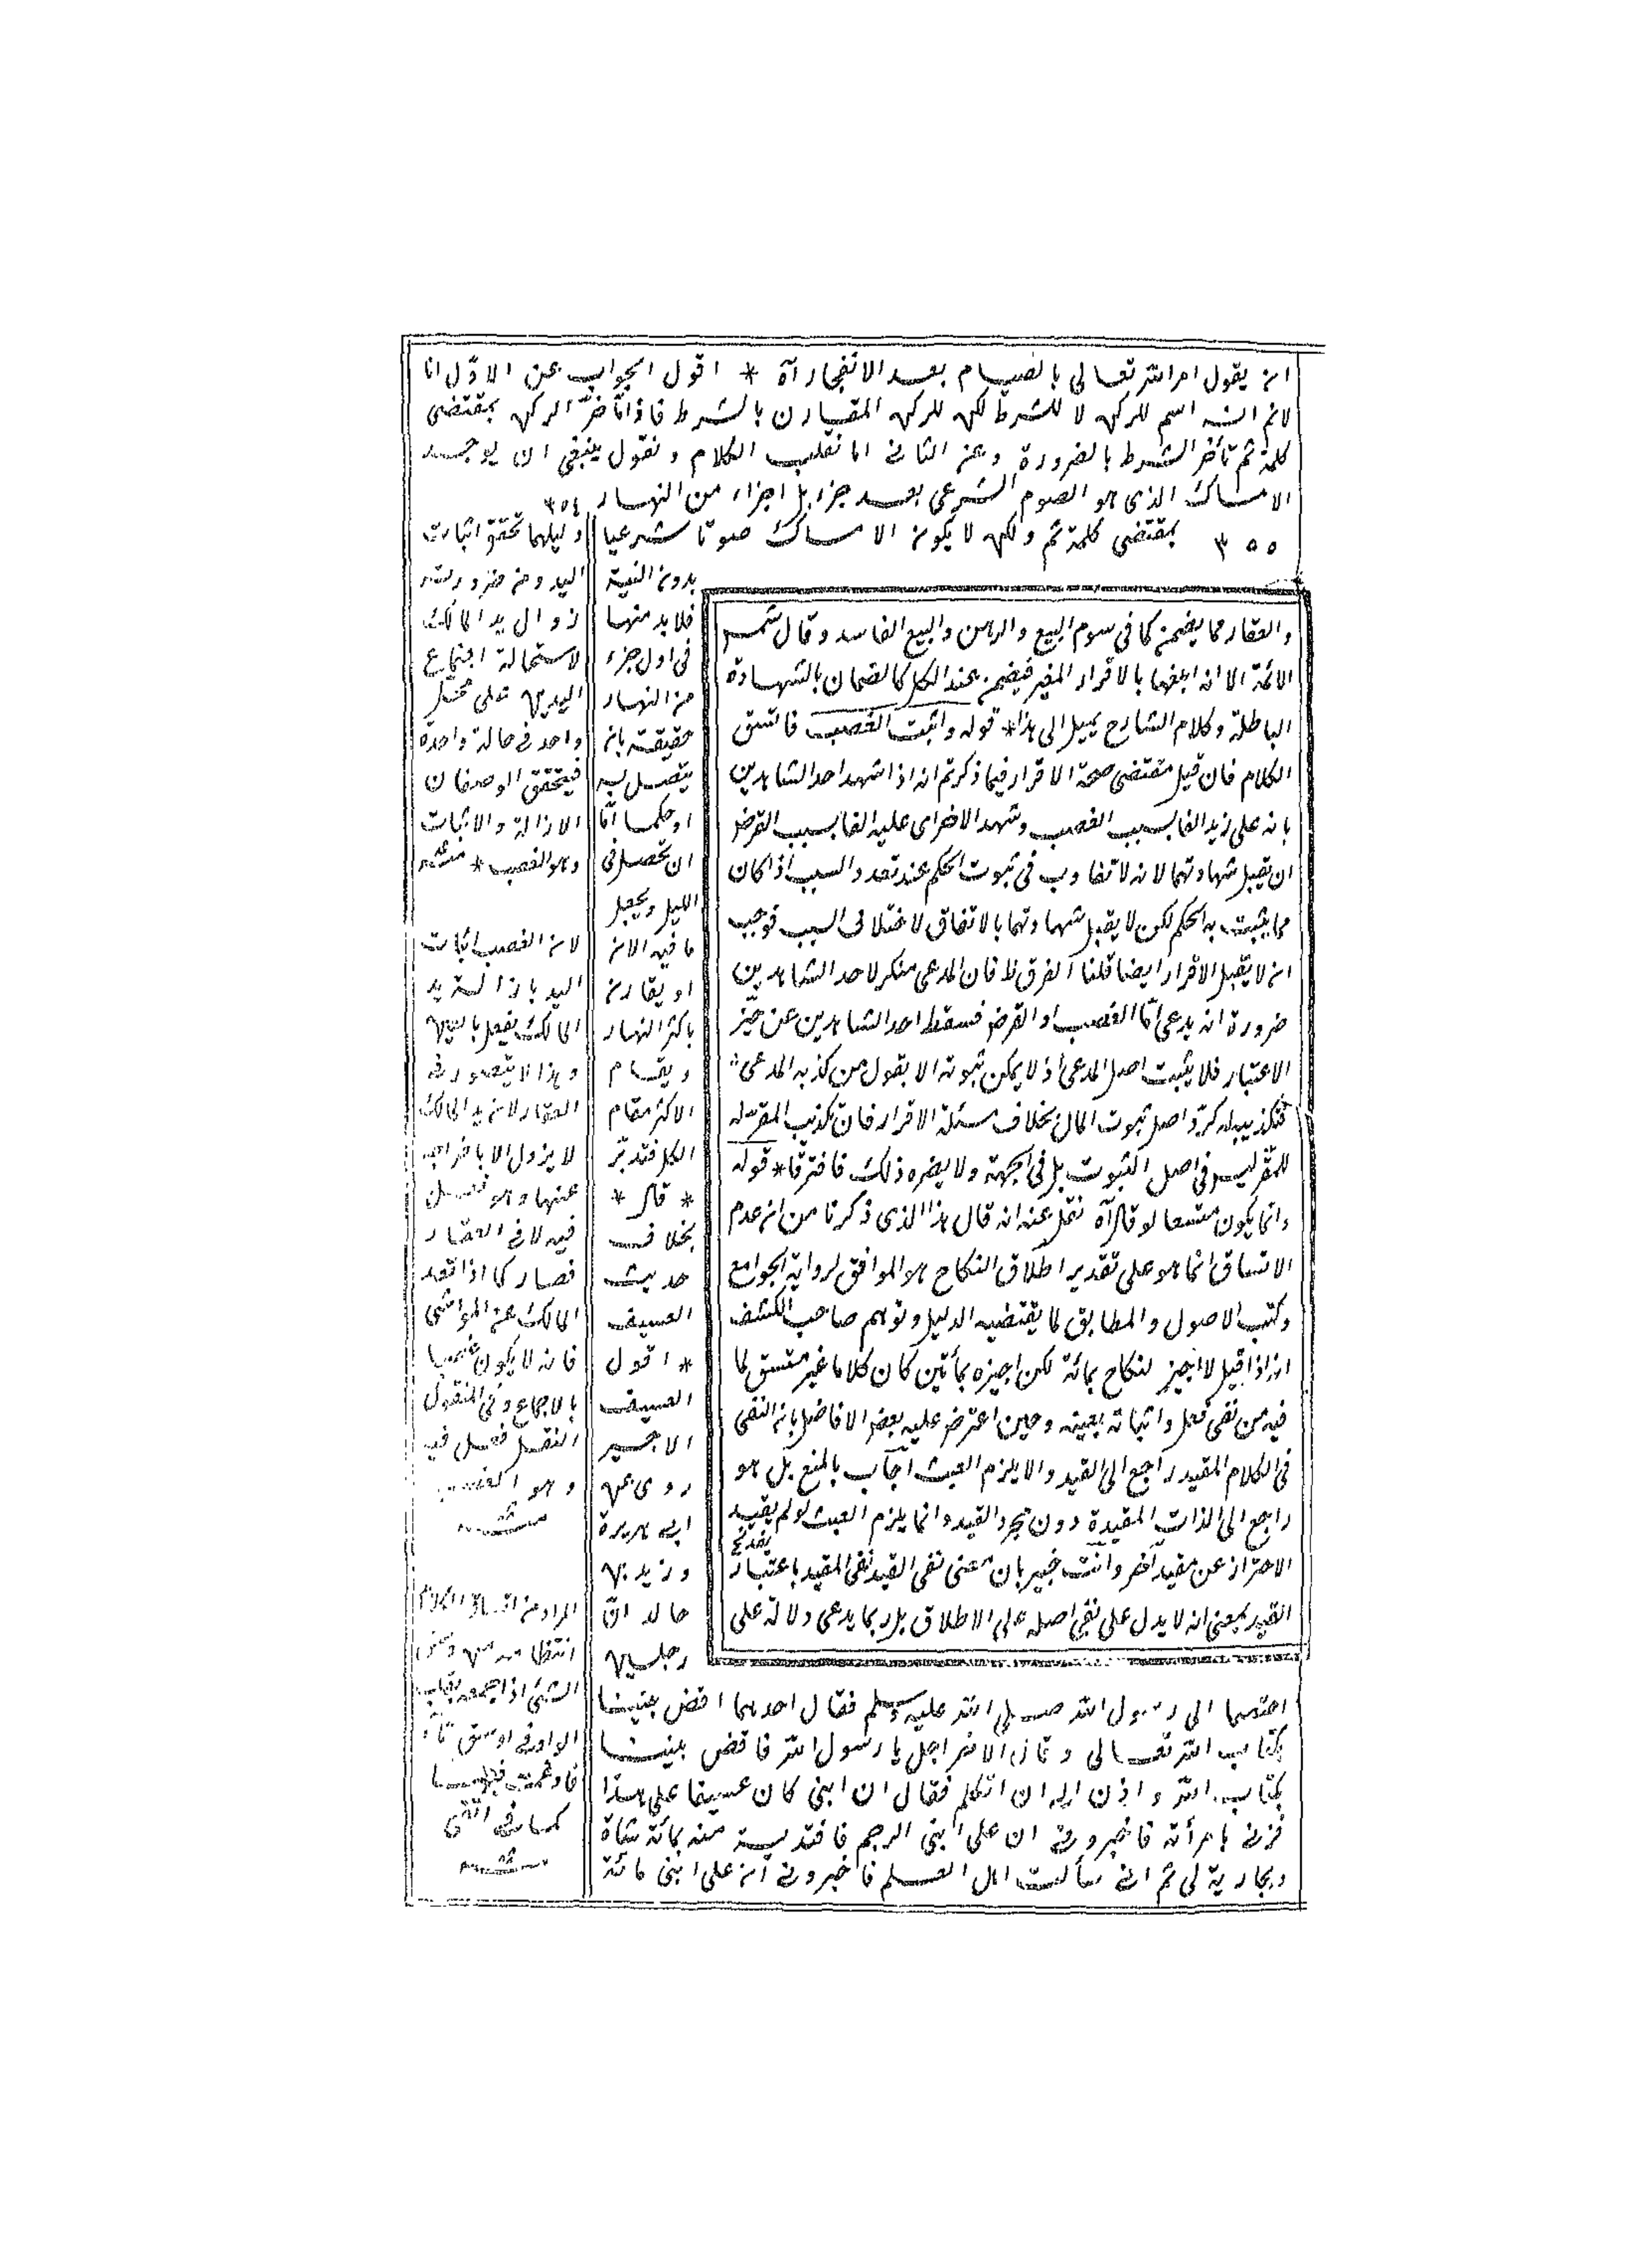 ان يقول امر الله تعالى بالصيام بعد الانفجار آه * اقول الجواب عن الاول انا
لانم انه اسم للركن لا للشرط لكن للركن المقارن بالشرط فاذا تأخر الركن بمقتضى
كلمة ثم تأخر الشرط بالضرورة وعن الثاني انا نقلب الكلام ونقول ينبغي ان يوجد
الامساك الذى هو الصوم الشرعى بعد جزء بل اجزاء من النهار ٣٥٤
٣٥٥ بمقتضى كلمة ثم ولكن لا يكون الامساك صوما شرعيا
بدون النية
فلا بد منها
فى اول جزء
من النهار
حقيقة بان
يتصل به
او حكما اما
ان تحصل فى
الليل ويجعل
ما فيه الان
او يقارن
باكثر النهار
ويقام
الاكثر مقام
الكل فتدبر
* قال *
بخلاف
حديث
العسيف
* اقول
العسيف
الاجير
روى عن
ابى هريرة
وزيد بن
خالد ان
رجلين
اختصما الى رسول الله صلى الله عليه وسلم فقال احدهما اقض بيننا
بكتاب الله تعالى وقال الاخر اجل يا رسول الله فاقض بيننا
بكتاب الله واذن لى ان اتكلم فقال ان ابنى كان عسيفا على هذا
فزنى بامرأته فاخبرونى ان على ابنى الرجم فافتديت منه بمائة شاة
وبجارية لى ثم انى سألت اهل العلم فاخبرونى ان على ابنى مائة
والعقار مما يضمن كما فى سوم البيع والرهن والبيع الفاسد وقال شمس
الائمة الا انه اتلفها بالاقرار المغير فيضمن عند الكل كالضمان بالشهادة
الباطلة وكلام الشارح يميل الى هذا * قوله واثبت الغصب فاتسق
الكلام فان قيل مقتضى صحة الاقرار فيما ذكرتم انه اذا شهد احد الشاهدين
بانه على زيد الفا بسبب الغصب وشهد الاخر اى عليه الفا بسبب القرض
ان يقبل شهادتهما لانه لا تفاوت فى ثبوت الحكم عند تعدد السبب اذا كان
مما يثبت به الحكم لكن لا يقبل شهادتهما بالاتفاق لاختلاف السبب فوجب
ان لا يقبل الاقرار ايضا قلنا الفرق ظ فان المدعى منكر لاحد الشاهدين
ضرورة انه يدعى اما الغصب او القرض فسقط احد الشاهدين عن حيز
الاعتبار فلا يثبت اصل المدعى اذ لا يمكن ثبوته الا بقول من كذبه المدعى
فتكذيبه له كرد اصل ثبوت المال بخلاف مسئلة الاقرار فان تكذيب المقر له
للمقر ليس فى اصل الثبوت بل فى الجهة ولا يضره ذلك فافترقا * قوله
وانما يكون متسعا لو قال آه نقل عنه انه قال هذا الذى ذكرنا من ان عدم
الاتساق انما هو على تقدير اطلاق النكاح هو الموافق لرواية الجوامع
وكتب الاصول والمطابق لما يقتضيه الدليل وتوهم صاحب الكشف
انه اذا قيل لا اجيز النكاح بمائة لكن اجيزه بمأتين كان كلاما غير متسق لما
فيه من نفى فعل واثباته بعينه وحين اعترض عليه بعض الافاضل بان النفى
فى الكلام المقيد راجع الى القيد والا يلزم العبث اجاب بالمنع بل هو
راجع الى الذات المقيدة دون مجرد القيد وانما يلزم العبث لو لم يقيد
الاحتراز عن مقيد آخر وانت خبير بان معنى نفى القيد نفى المقيد باعتبار
القيد بمعنى انه لا يدل على نفى اصله على الاطلاق بل ربما يدعى دلالة على
دليلهما تحقق اثبات
اليد ومن ضرورته
زوال يد المالك
لاستحالة اجتماع
اليدين على محل
واحد فى حالة واحدة
فيتحقق الوصفان
الازالة والاثبات
وهو الغصب * منه
لان الغصب اثبات
اليد بازالة يد
المالك بفعل بالعين
وهذا لا يتصور فى
العقار لان يد المالك
لا يزول الا باخراجه
عنها وهو فعل
فيه لا فى العقار
فصار كما اذا تعد
المالك عن المواشى
فانه لا يكون غصبا
بالاجماع وفى المنقول
النقل فعل فيه
وهو الغصب
منه
المراد من اتساق الكلام
انتظامه من وسق
الشئ اذا جمعه بقلب
الواو فى اوتسق تاء
وادغمت فيها
كما فى اتقى
منه